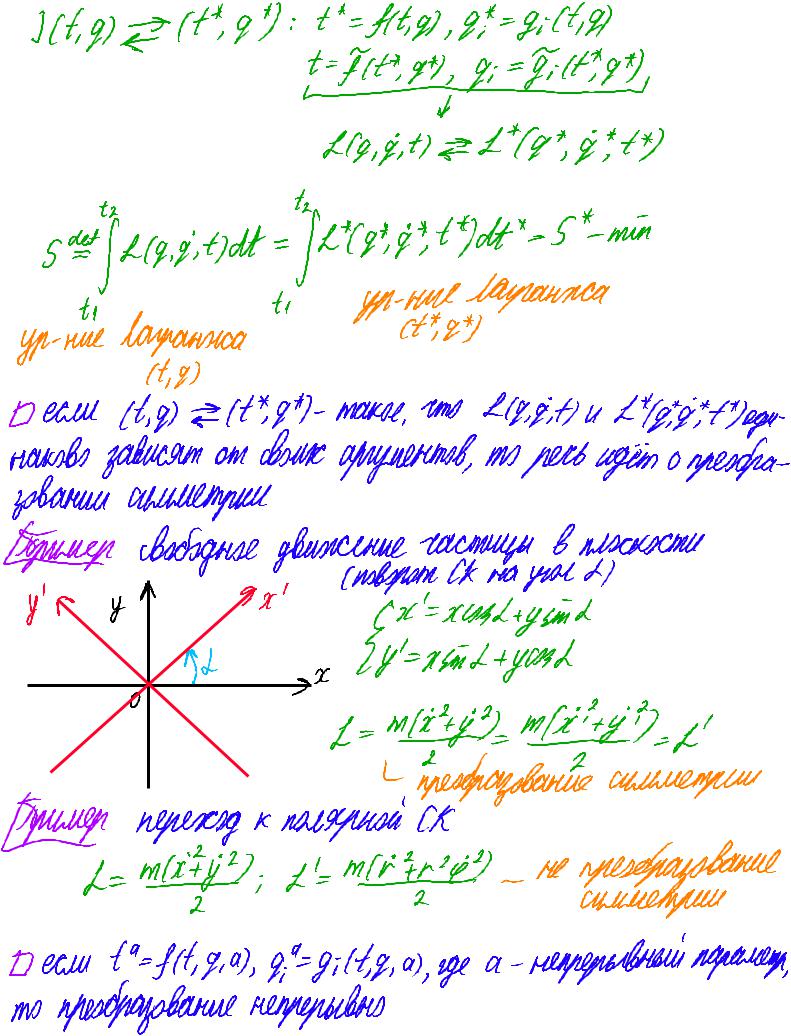 ](t,q) ⇄ (t*, q*): t* = f(t,q), q_i* = g_i(t,q)
t = f̃(t*, q*), q_i = g̃_i(t*, q*)
L(q, q̇, t) ⇄ L*(q*, q̇*, t*)
S def= ∫_{t1}^{t2} L(q, q̇, t)dt = ∫_{t1}^{t2} L*(q*, q̇*, t*)dt* = S* - min
ур-ние Лагранжа
(t*, q*)
ур-ние Лагранжа
(t, q)
□ если (t,q) ⇄ (t*, q*) - такое, что L(q, q̇, t) и L*(q*, q̇*, t*) оди-
наково зависят от своих аргументов, то речь идёт о преобра-
зовании симметрии
Пример свободное движение частицы в плоскости
(поворот СК на угол α)
y' y x' x' = x cosα + y sinα
y' = x sinα + y cosα
α x
0
L = m(ẋ²+ẏ²)/2 = m(ẋ'²+ẏ'²)/2 = L'
преобразование симметрии
Пример переход к полярной СК
L = m(ẋ²+ẏ²)/2 ; L' = m(ṙ²+r²φ̇²)/2 - не преобразование
симметрии
□ если t^a = f(t,q,a), q_i^a = g_i(t,q,a), где a - непрерывный параметр,
то преобразование непрерывно